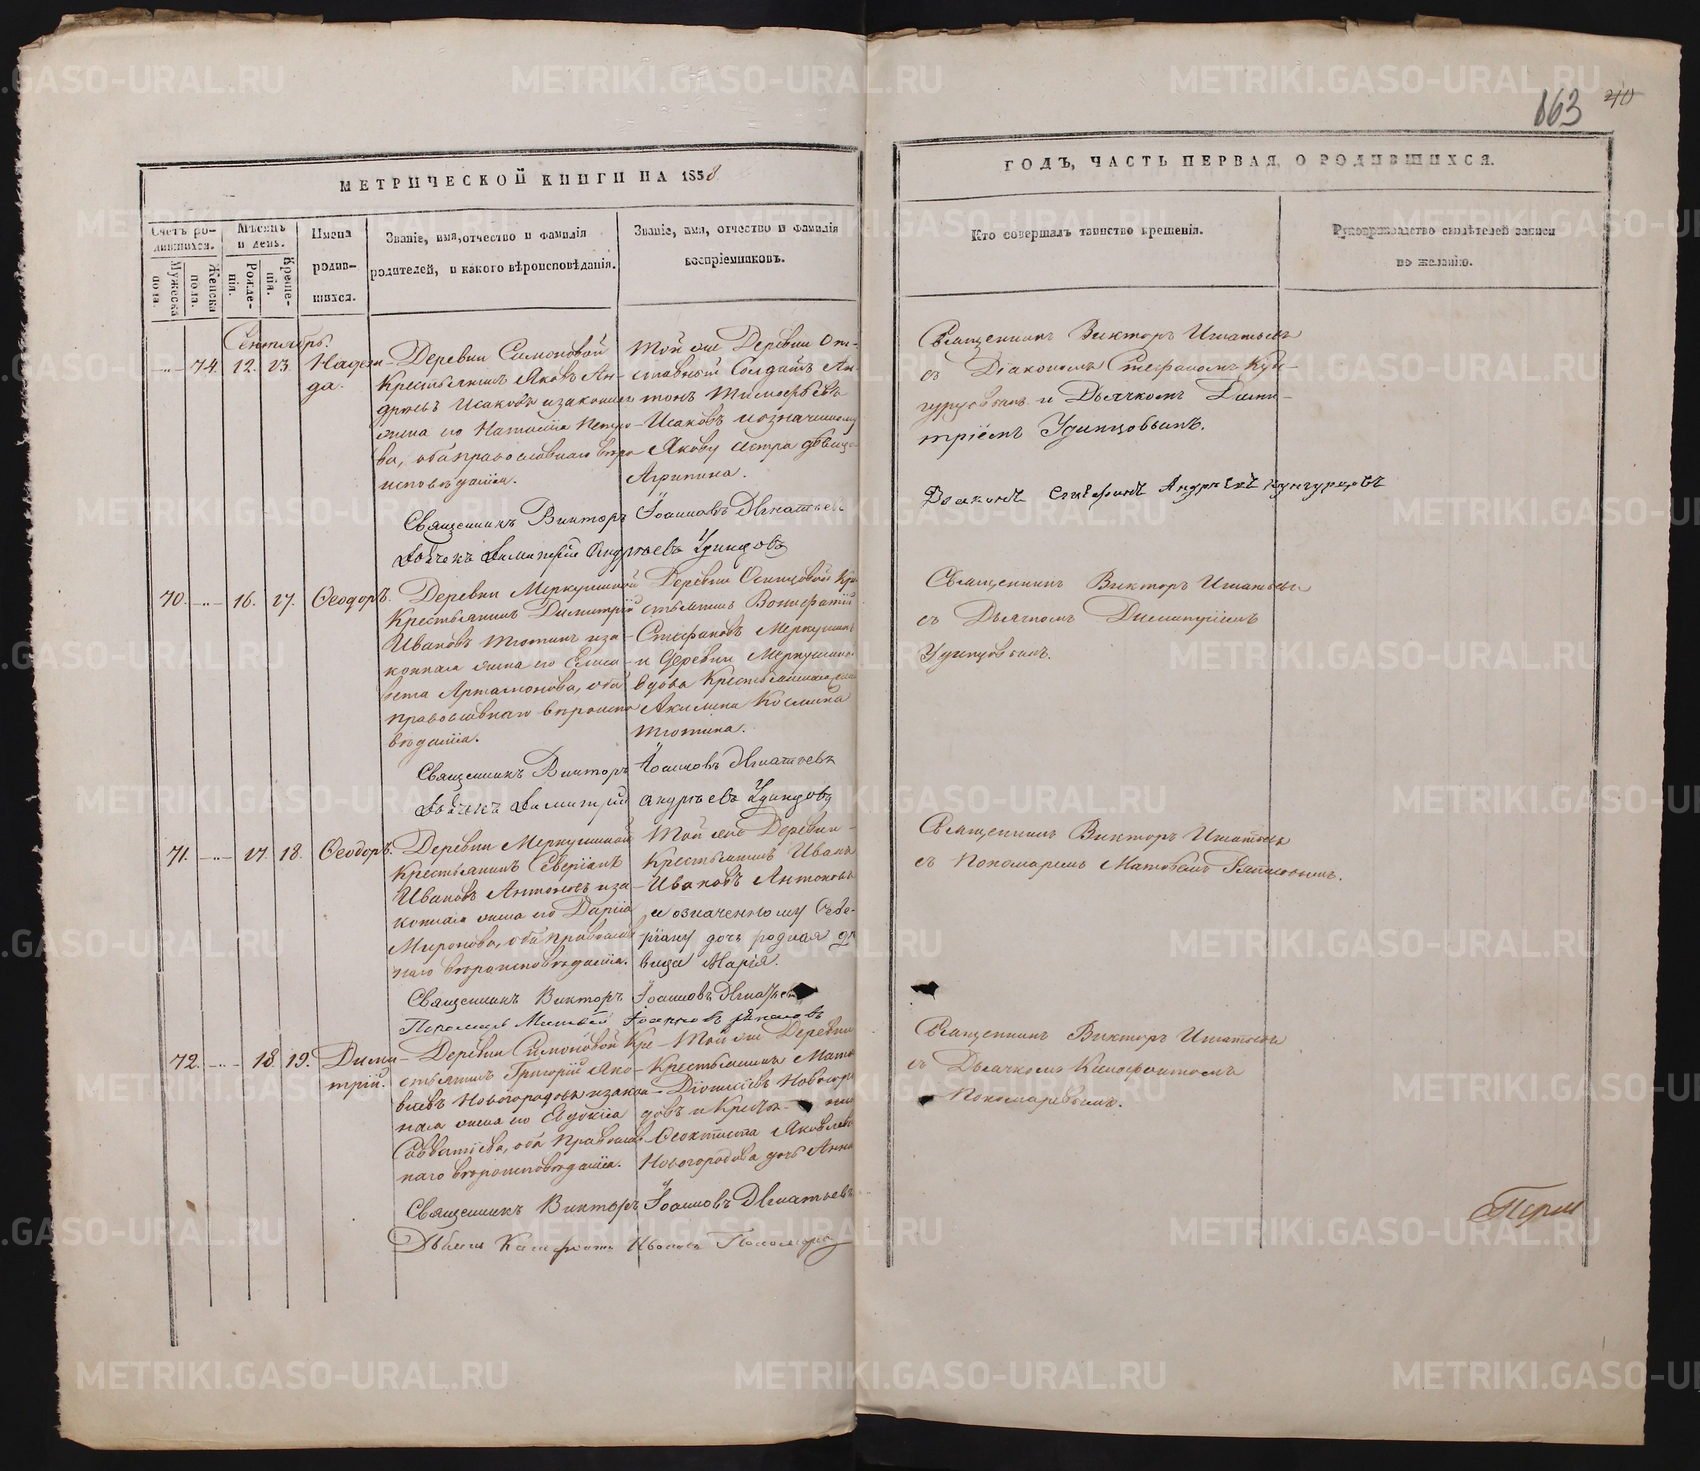 863 40
МЕТРИЧЕСКОЙ КНИГИ НА 1858
ГОДЪ, ЧАСТЬ ПЕРВАЯ, О РОДИВШИХСЯ.
Счетъ родившихся.
Мужеска пола.
Женска пола.
Мѣсяцъ и день.
Рожденія.
Крещенія.
Имена родившихся.
Званіе, имя, отчество и фамилія
родителей, и какого вѣроисповѣданія.
Званіе, имя, отчество и фамилія
воспріемниковъ.
Кто совершалъ таинство крещенія.
Рукоприкладство свидѣтелей записи
по желанію.
Сентябрь.
74. 12. 13. Надежда.
Деревни Симоновой
Крестьянинъ Яковъ Ан-
дреевъ Исаковъ и законная
жена его Наталія Петро-
ва, оба православнаго вѣро-
исповѣданія.
Той же Деревни От-
ставный Солдатъ Ан-
тонъ Тимофѣевъ
Исаковъ и означенному
Якову сестра дѣвица
Агрипина.
Священникъ Викторъ Игнатьевъ
съ Діакономъ Стефаномъ Кун-
гурцовымъ и Дьячкомъ Дими-
тріемъ Удинцовымъ.
Діаконъ Стефанъ Андреевъ Кунгурцовъ
Священникъ Викторъ Іоанновъ Игнатьевъ
Дьячекъ Димитрій Андреевъ Удинцовъ
70. 16. 17. Ѳеодоръ.
Деревни Меркушиной
Крестьянинъ Димитрій
Ивановъ Тютинъ и за-
конная жена его Елиса-
вета Артамонова, оба
православнаго вѣроиспо-
вѣданія.
Деревни Осинцовой Кре-
стьянинъ Вонифатій
Стефановъ Меркушинъ
и Деревни Меркушиной
вдова Крестьянская жена
Акилина Космина
Тютина.
Священникъ Викторъ Игнатьевъ
съ Дьячкомъ Димитріемъ
Удинцовымъ.
Священникъ Викторъ Іоанновъ Игнатьевъ
Дьячекъ Димитрій Андреевъ Удинцовъ
71. 17. 18. Ѳеодоръ.
Деревни Меркушиной
Крестьянинъ Северіанъ
Ивановъ Антоновъ и за-
конная жена его Дарія
Миронова, оба православ-
наго вѣроисповѣданія.
Той же Деревни
Крестьянинъ Иванъ
Ивановъ Антоновъ
и означенному Севе-
ріану дочь родная дѣ-
вица Марія.
Священникъ Викторъ Игнатьевъ
съ Пономаремъ Матвѣемъ
Священникъ Викторъ Іоанновъ Игнатьевъ
Пономарь Матвѣй Іоанновъ
72. 18. 19. Димитрій.
Деревни Симоновой Кре-
стьянинъ Григорій Яко-
влевъ Новогородовъ и закон-
ная жена его Евдокія
Савватіева, оба православ-
наго вѣроисповѣданія.
Той же Деревни
Крестьянинъ Матвей
Діонисіевъ Новогоро-
довъ и Крестьянина
Ѳеоктиста Яковлева
Новогородова дочь Анна
Священникъ Викторъ Игнатьевъ
съ Дьячкомъ Ксенофонтомъ
Пономаревымъ.
Священникъ Викторъ Іоанновъ Игнатьевъ
Дьячекъ Ксенофонтъ Ивановъ Пономаревъ
METRIKI.GASO-URAL.RU